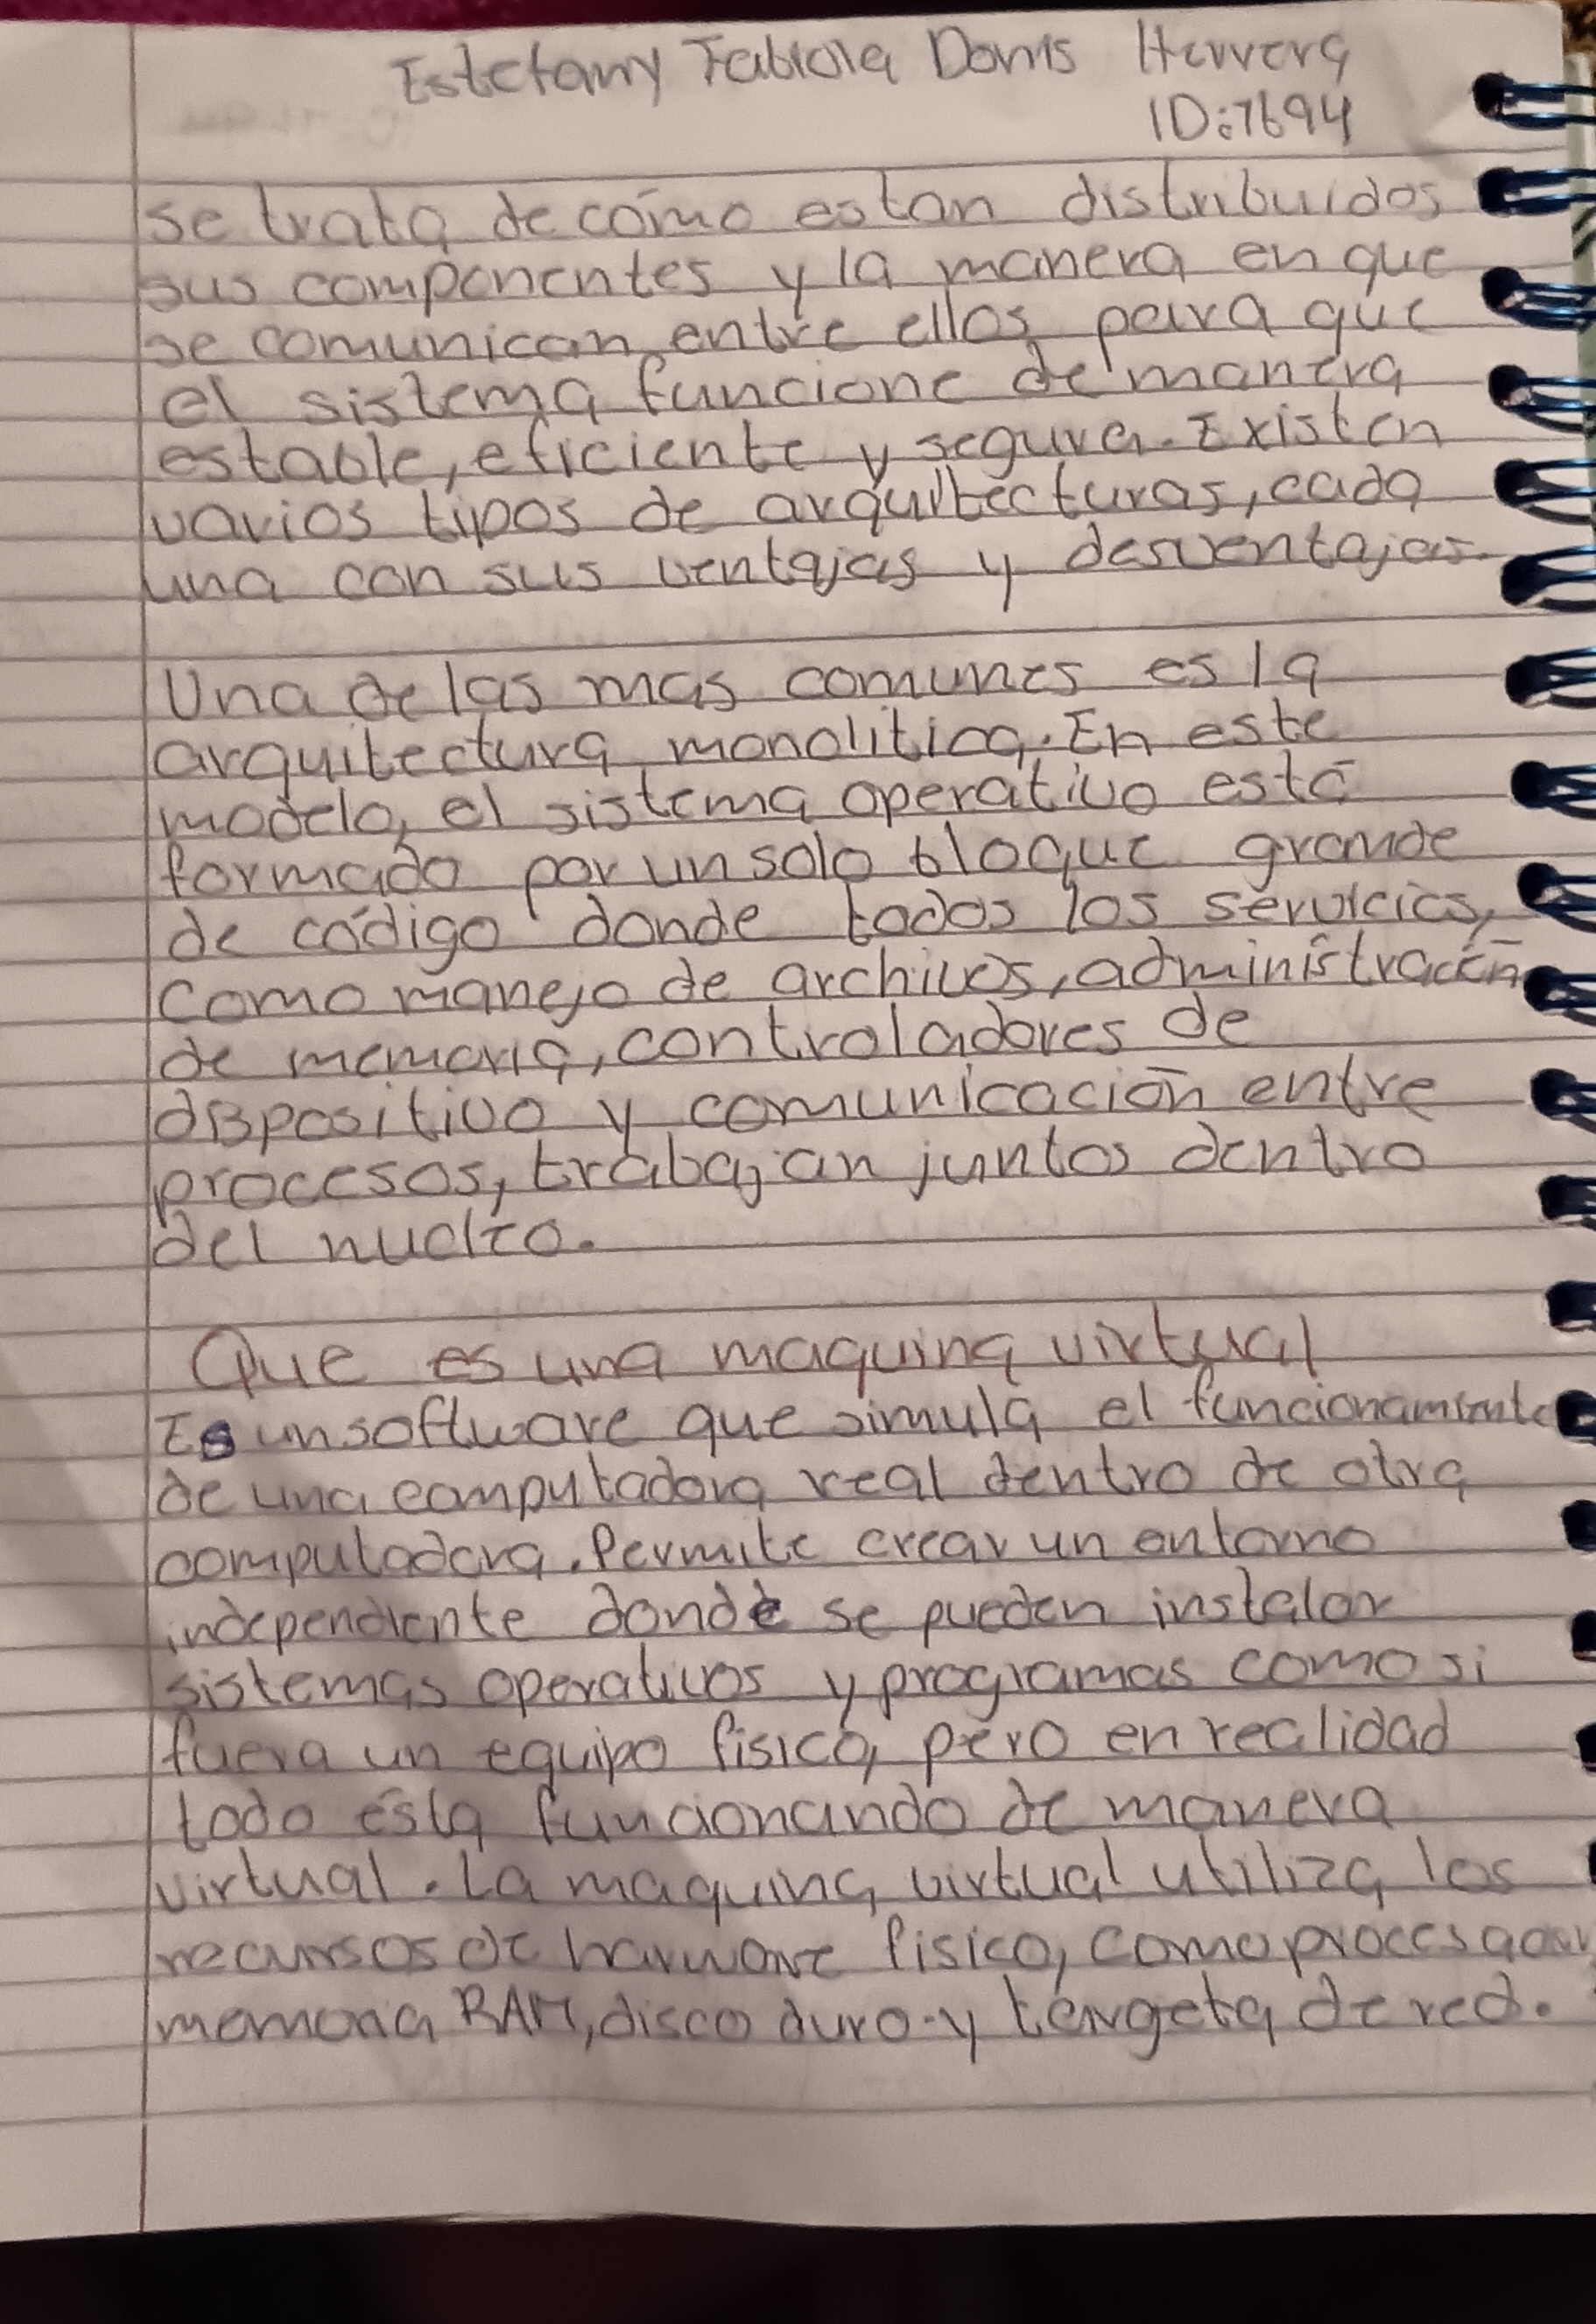 Estefany Fabiola Donis Herrera
ID:7694
se trata de cómo estan distribuidos
sus componentes y la manera en que
se comunican entre ellos para que
el sistema funcione de manera
estable, eficiente y segura. Existen
varios tipos de arquitecturas, cada
una con sus ventajas y desventajas.
Una de las mas comunes es la
arquitectura monolitica. En este
modelo, el sistema operativo está
formado por un solo bloque grande
de código donde todos los servicios,
como manejo de archivos, administración
de memoria, controladores de
dispositivo y comunicación entre
procesos, trabajan juntos dentro
del nucleo.
Que es una maquina virtual
Es un software que simula el funcionamiento
de una computadora real dentro de otra
computadora. Permite crear un entorno
independiente donde se pueden instalar
sistemas operativos y programas como si
fuera un equipo fisico, pero en realidad
todo ésta funcionando de manera
virtual. La maquina virtual utiliza los
recursos de harware fisico, como procesador
memoria RAM, disco duro y targeta de red.